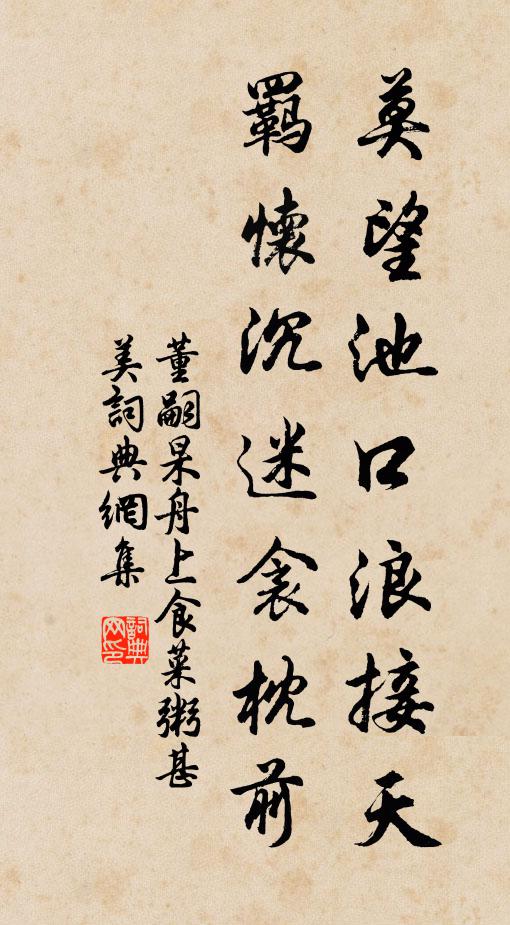 莫望池口浪接天
羈懷沉迷衾枕前
董嗣杲舟上食菜粥甚
美詞典網集
詞典网印